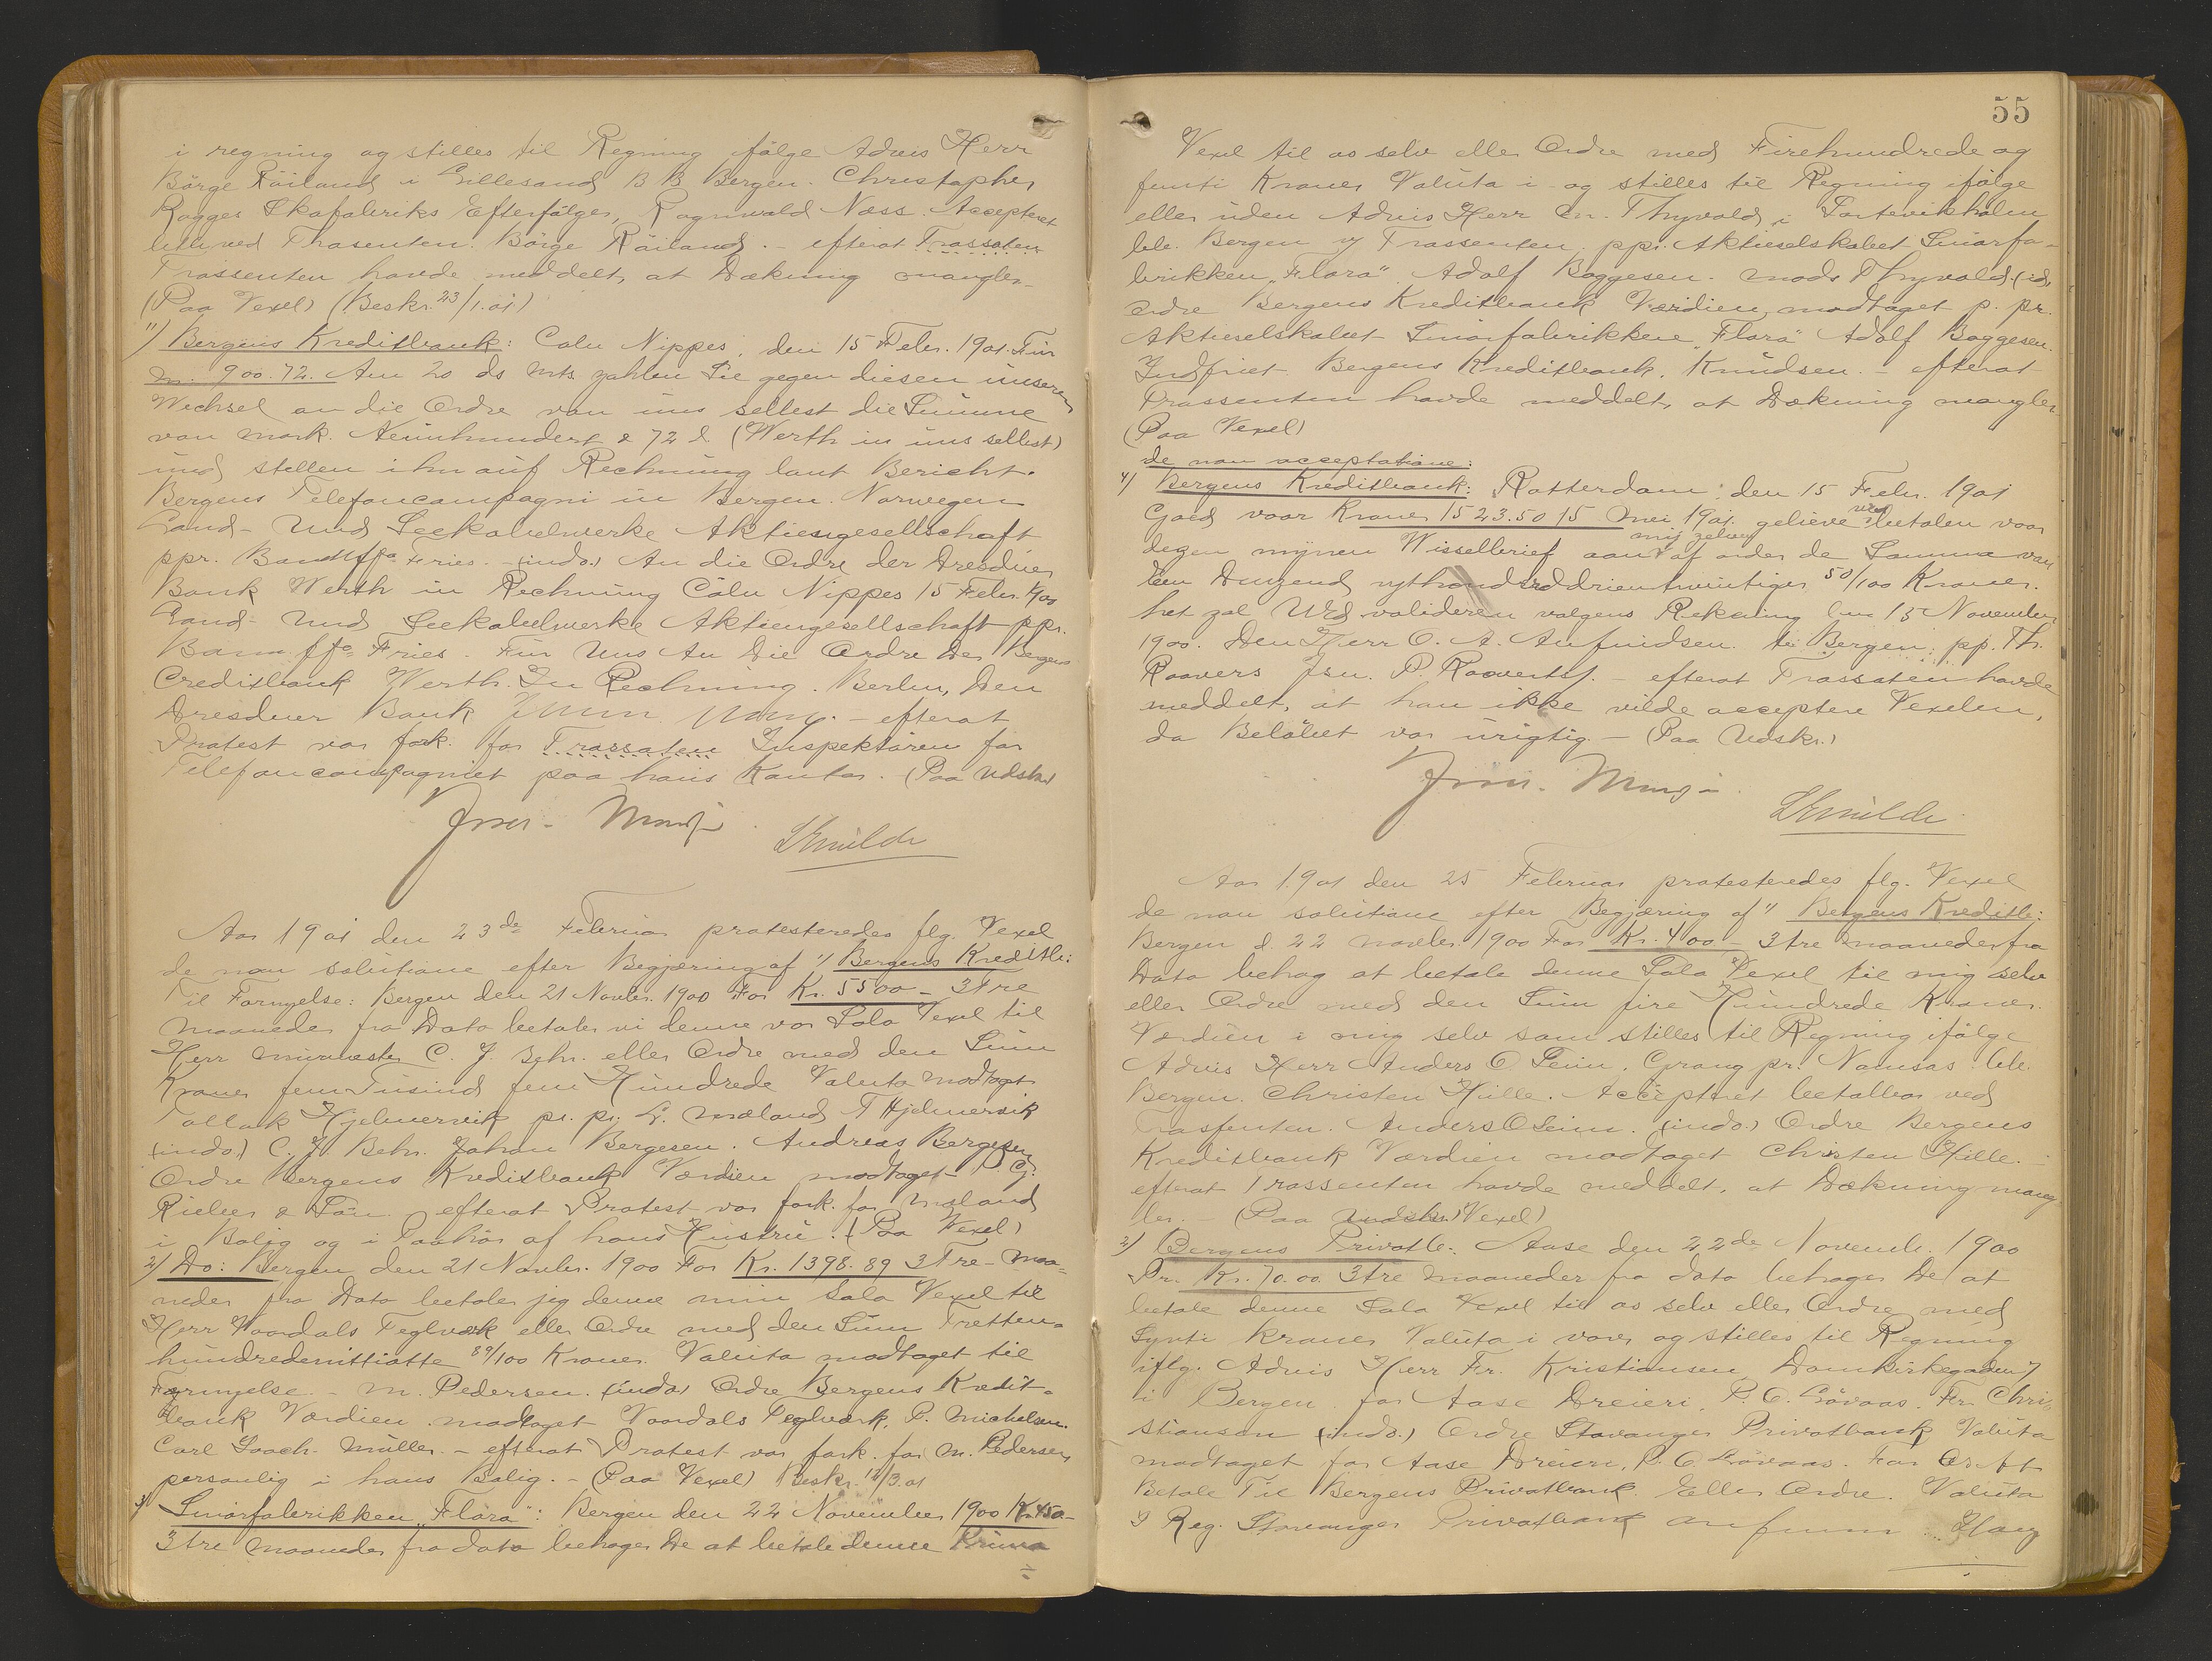 i regning og stilles til Regning ifölge Advis Herr
Börge Röiland i Lillesand B B Bergen. Christopher
Rogges Skofabriks Efterfölger, Ragnvald Næss. Accepteret
bble ved Trasenten. Börge Röiland. - efterat Trassaten
Trassenten havde meddelt, at Dækning mangler.
(Paa Vexel) (Beskr. 23/1.01)
11) Bergens Kreditbank: Cöln Nippes, den 15 Febr. 1901. Für
M. 900.72. Am 20 ds Mts. zahlen Sie gegen diesen unseren
Wechsel an die Ordre von uns selbst die Summe
von Mark. Neunhundert & 72 d. (Werth in uns selbst)
und stellen ihn auf Rechnung laut Bericht.
Bergens Telefoncompagni in Bergen. Norwegen
Land- Und Seekabelwerke Aktiengesellschaft
ppr. Fries. - (indo.) An die Ordre der Dresdner
Bank Werth in Rechnung Cöln Nippes 15 Febr. 1901
Land- Und Seekabelwerke Aktiengesellschaft ppr.
Fries. Für Uns An Die Ordre Der Bergens
Creditbank Werth. In Rechnung. Berlin, Den
Dresdner Bank - efterat
Protest var fork. for Trassaten Inspektören for
Telefoncompagniet paa hans Kontor. (Paa Udskr.)
Aar 1901 den 23de Februar protesteredes flg. Vexel
de non solutione efter Begjæring af 1/ Bergens Kreditb:
Til Fornyelse: Bergen den 21 Novbr. 1900 For Kr. 5500 - 3 Tre
Maaneder fra Dato betaler vi denne vor Sola Vexel til
Herr Murmester C. J. Behr. eller Ordre med den Sum
Kroner fem Tusind fem Hundrede Valuta modtaget
Tollak Hjelmervik pr. pr. L. Mæland T Hjelmervik
(indo.) C. J. Behr. Johan Bergesen. Andreas Bergesen
Ordre Bergens Kreditbank Værdien modtaget P. G.
Rieber & Sön. efterat Protest var fork. for Mæland
i Bolig og i Paahör af hans Hustru. (Paa Vexel)
2) Do: Bergen den 21 Novbr. 1900 For Kr. 1398.89 3 Tre - Maa-
neder fra Dato betaler jeg denne min Sola Vexel til
Herr Vaardals Teglværk eller Ordre med den Sum Tretten-
hundredenittiotte 89/100 Kroner. Valuta modtaget til
Fornyelse - M. Pedersen. (indo) Ordre Bergens Kredit-
bank Værdien modtaget Vaardals Teglværk. P. Michelsen.
Carl Joach. Müller. - efterat Protest var fork. for M. Pedersen
personlig i hans Bolig. - (Paa Vexel) Beskr. 12/3.01
3) Smörfabrikken "Flora": Bergen den 22 November 1900 Kr. 450-
3 tre Maaneder fra dato behager De at betale denne Prima
55
Vexel til os selv eller Ordre med Firehundrede og
femti Kroner Valuta i og stilles til Regning ifölge
eller uden Advis Herr M. Thyvold, i
bble. Bergen v/ Trassenten. ppr. Aktieselskabet Smörfa-
brikken "Flora" Adolf Boggesen. Mads Thyvold. (ido)
Ordre Bergens Kreditbank Værdien modtaget p. pr.
Aktieselskabet Smörfabrikken "Flora" Adolf Boggesen.
Indfriet Bergens Kreditbank. Knudsen. - efterat
Trassenten havde meddelt, at Dækning mangler.
(Paa Vexel)
de non acceptatione:
4) Bergens Kreditbank: Rotterdam, den 15 Febr. 1901
Goed voor Kroner 1523.50 15 Mei 1901. gelieve UEd betalen voor
dezen mijnen Wisselbrief aan mij zelven af order de Somma van
Een Duizend vyfhonderddrientwintiger 50/100 Kroner.
het zal UEd valideren volgens Rekening van 15 November
1900. Den Herr O. A. Aufindsen. te Bergen; pp. Th.
Roovers Jsn. P. - efterat Trassaten havde
meddelt, at han ikke vilde acceptere Vexelen,
da Belöbet var urigtig. - (Paa Udskr.)
Aar 1901 den 25 Februar protesteredes flg. Vexel
de non solutione efter Begjæring af 1/ Bergens Kreditb:
Bergen d. 22 Novbr. 1900 For Kr. 400 - 3 tre Maaneder fra
Dato behag at betale denne Sola Vexel til mig selv
eller Ordre med den Sum fire Hundrede Kroner.
Værdien i mig selv som stilles til Regning ifölge
Advis Herr Anders O Seim. Grong pr. Namsos. bble.
Bergen. Christen Hille. Accepteret betalbar ved
Trasfenten. Anders O Seim. (indo.) Ordre Bergens
Kreditbank Værdien modtaget Christen Hille. -
efterat Trassenten havde meddelt, at Dækning mang-
ler. - (Paa Vexel)
2) Bergens Privatb.: Aase den 22de Novemb. 1900
Pr. Kr. 70.00. 3 tre Maaneder fra dato behager De at
betale denne Sola Vexel til os selv eller Ordre med
Sytti kroner Valuta i vores og stilles til Regning
iflg. Advis Herr Fr. Kristiansen Domkirkegaden 7
i Bergen. for Aase Dreieri, P. O. Lövaas. Fr. Chri-
stiansen (indo.) Ordre Stavanger Privatbank Valuta
modtaget for Aase Dreieri, P. O Lövaas. For Os At
Betale Til Bergens Privatbank Eller Ordre. Valuta
I Reg. Stavanger Privatbank